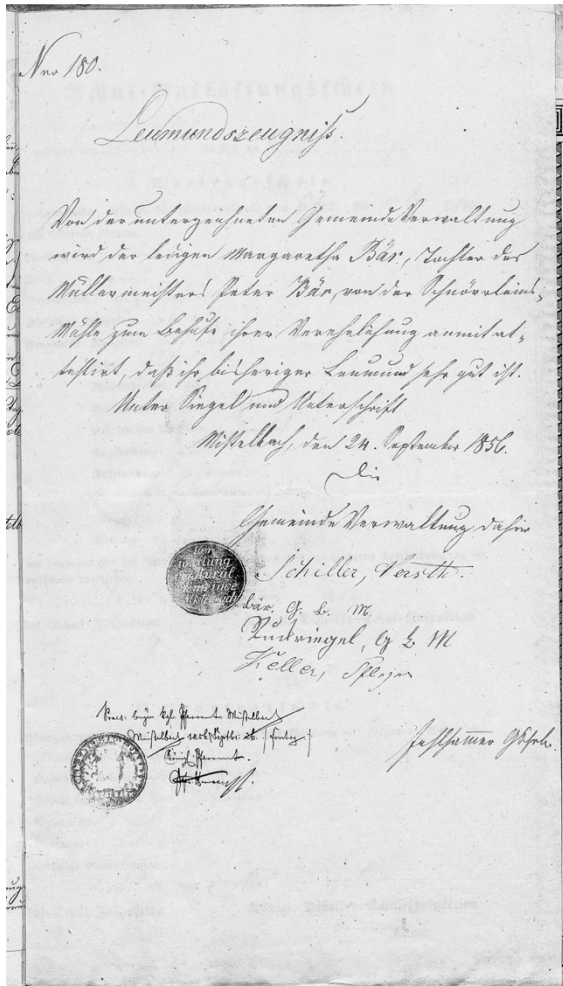 Nro 180.
Leumundszeugniß.
Von der unterzeichneten Gemeinde Verwaltung
wird der ledigen Margaretha Bär, Tochter des
Müllermeisters Peter Bär, von der Schnörrleins-
Mühle zum Behufe ihrer Verehelichung anmit at-
testirt, daß ihr bisheriger Leumund sehr gut ist.
Unter Siegel und Unterschrift
Mistelbach, den 24. September 1856.
Die
Gemeinde Verwaltung dahier
Schiller, Vorsth.
Bär. G. B. M.
Ruckriegel, G B M
Keller, Pfleger
Mistelbach
Mistelbach